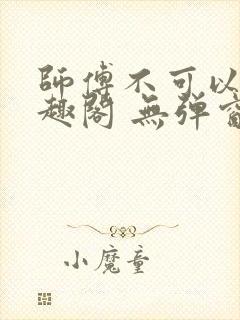 師傅不可以
趣閣 無彈
小魔童